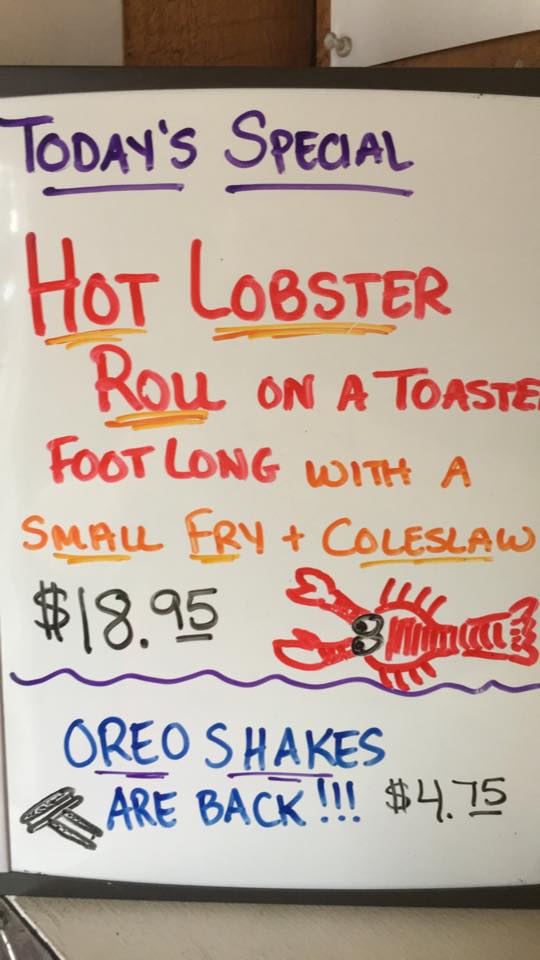 TODAY'S SPECIAL
HOT LOBSTER
ROLL ON A TOASTE
FOOT LONG WITH A
SMALL FRY + COLESLAW
$18.95
OREO SHAKES
ARE BACK!!! $4.75